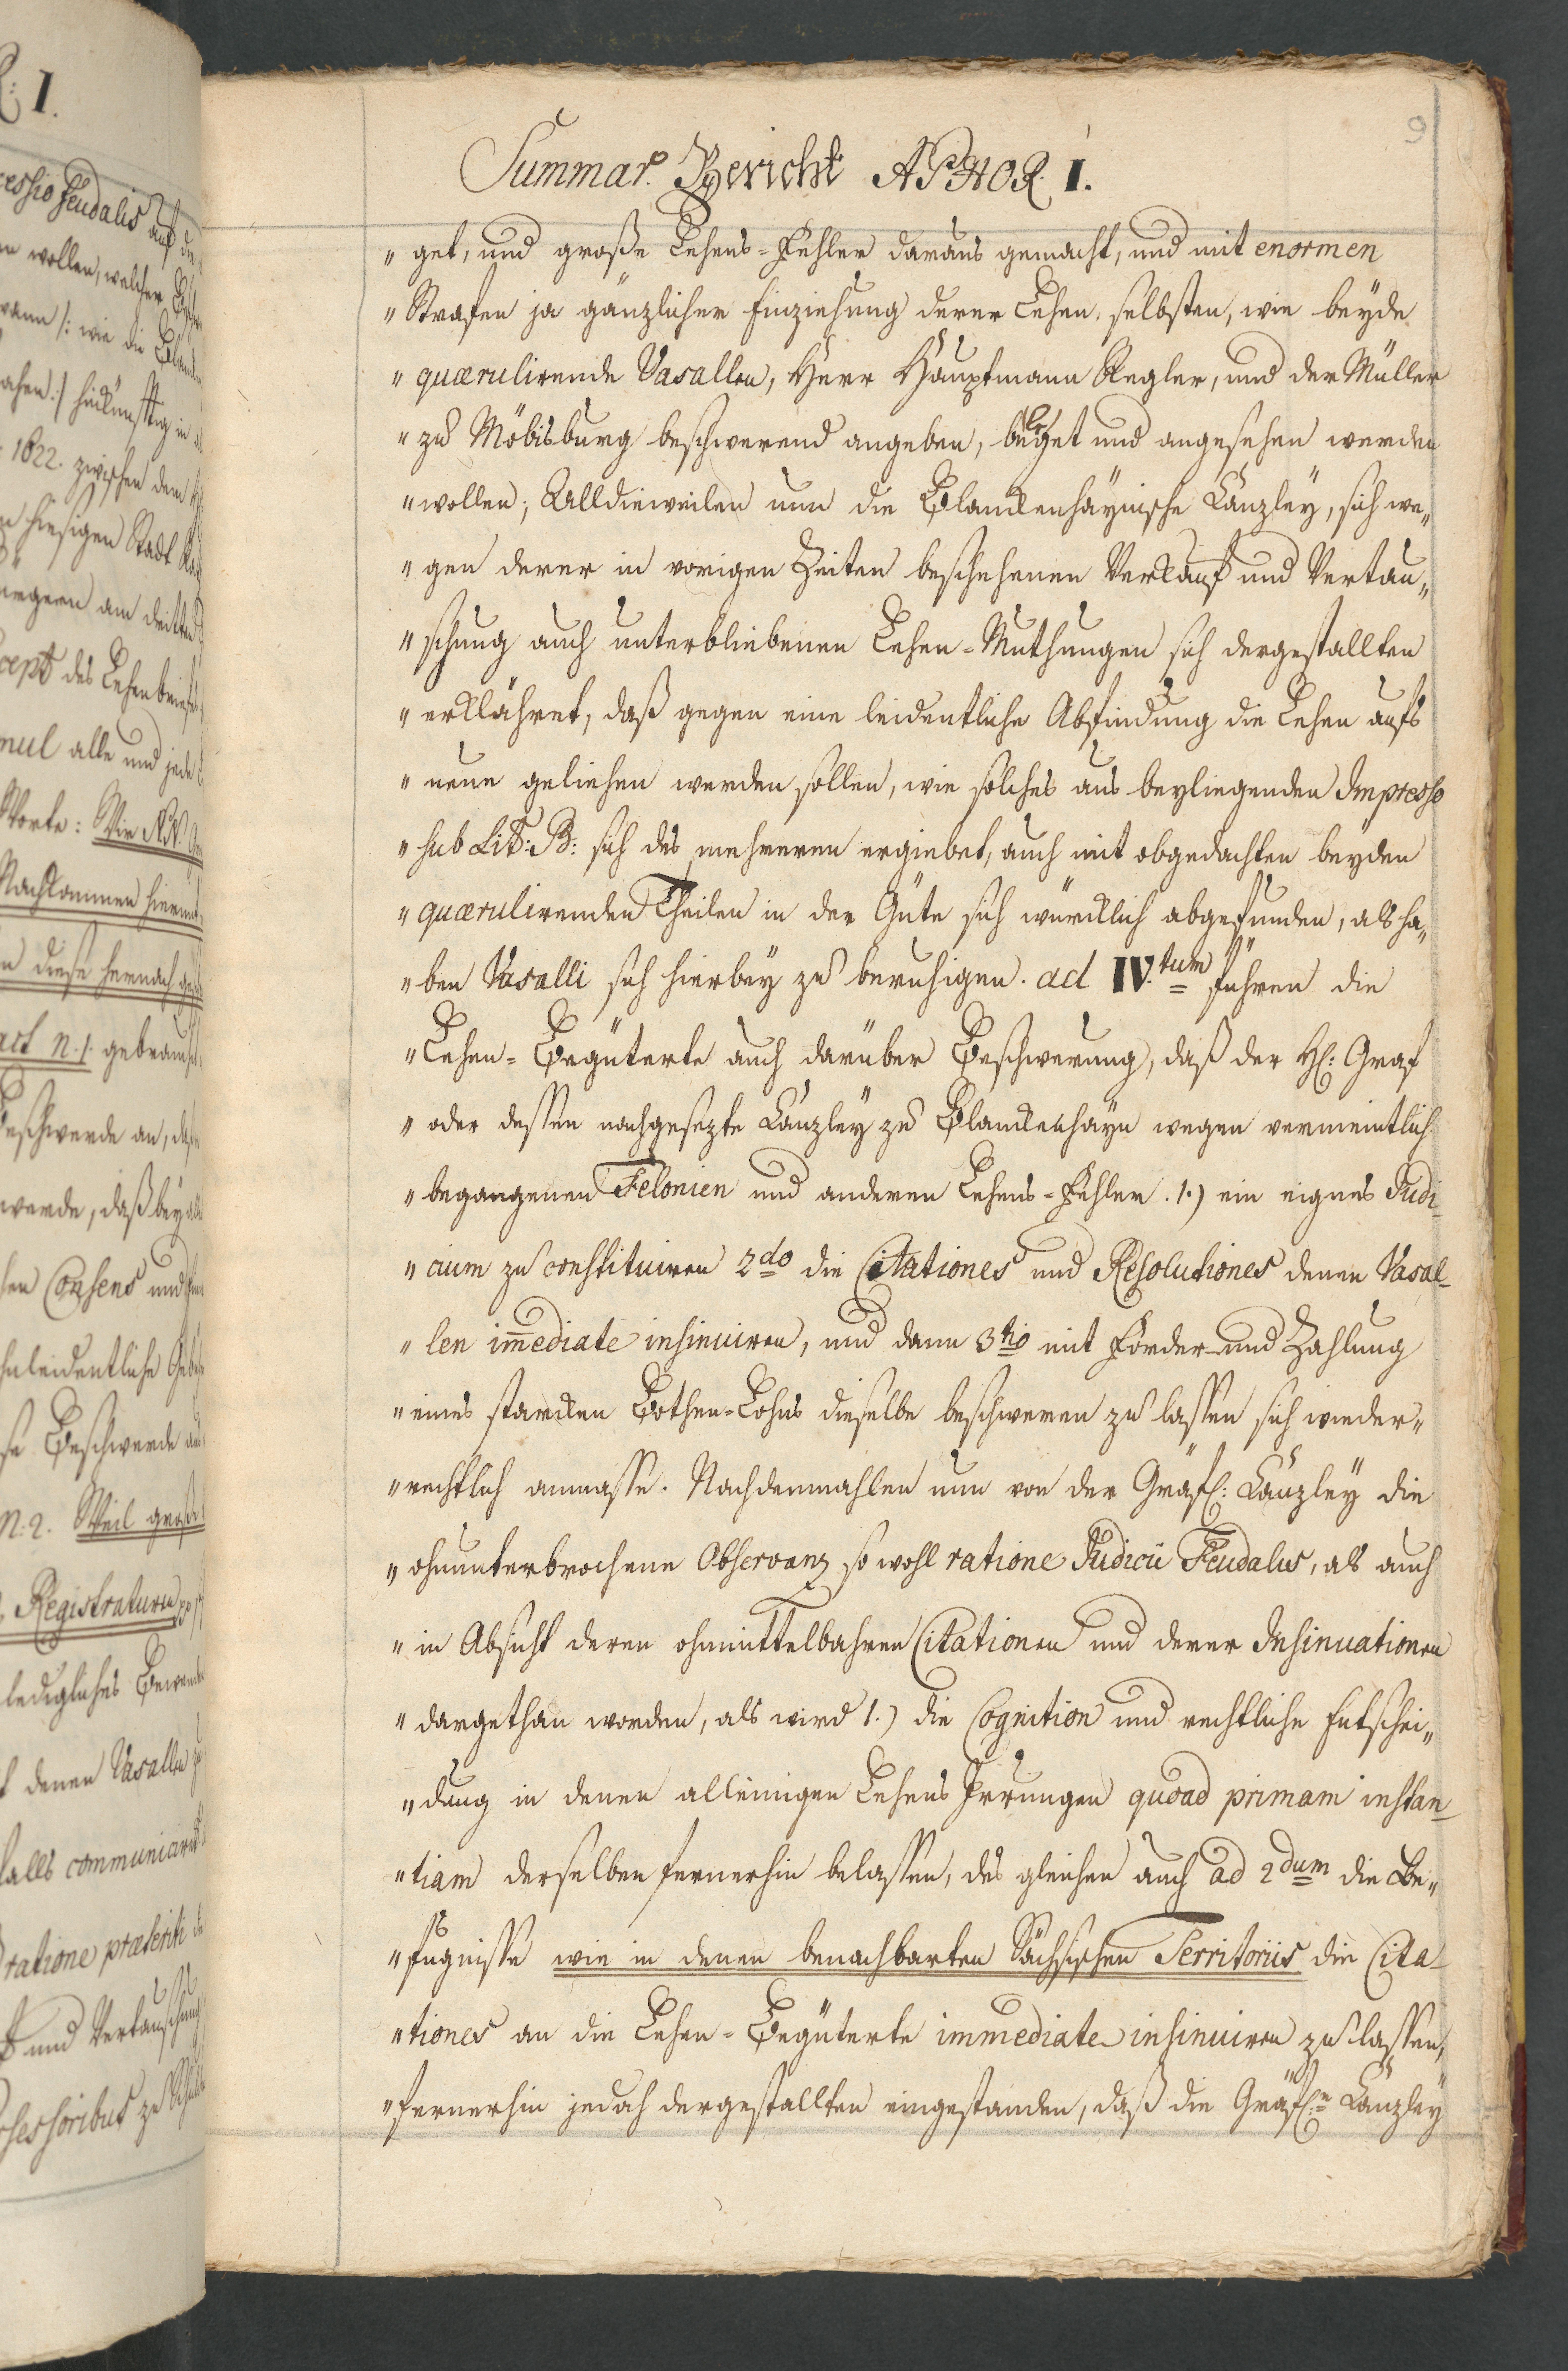 9
Summar. Bericht APHOR. I.
" get, und große Lehens-Fehler daraus gemacht, und mit enormen
" Strafen ja gänzlicher Einziehung derer Lehen, selbsten, wie beyde
" quærulirende Vasallen, Herr Hauptmann Regler, und der Müller
" zu Möbisburg beschwerend angeben, beleget und angesehen werden
" wollen; Alldieweilen nun die Blanckenhaynische Canzley, sich we„
" gen derer in vorigen Zeiten beschehenen Verkauf und Vertau„
" schung auch unterbliebenen Lehen-Muthungen sich dergestallten
" erklähret, daß gegen eine leidentliche Abfindung die Lehen aufs
" neue geliehen werden sollen, wie solches aus beyliegenden Impresso
" sub Lit: B: sich des mehreren ergiebet, auch mit obgedachten beyden
" quærulirenden Theilen in der Güte sich würcklich abgefunden, als ha„
" ben Vasalli sich hierbey zu beruhigen. ad IV.tum führen die
" Lehen-Begüterte auch darüber Beschwerung, daß der H: Graf
" oder dessen nachgesezte Canzley zu Blanckenhayn wegen vermeintlich
" begangenen Felonien und anderen Lehens-Fehler. 1.) ein eignes Judi-
" cium zu constituiren 2do die Citationes und Resolutiones denen Vasal-
" len im̅ediate insinuiren, und dann 3tio mit Forder- und Zahlung
" eines starcken Bothen-Lohns dieselbe beschweren zu lassen sich wieder„
" rechtlich anmasse. Nachdenmahlen nun von der Gräfl: Canzley die
" ohnunterbrochene Observanz so wohl ratione Judicii Feudalus, als auch
" in Absicht deren ohnmittelbahren Citationen und derer Insinuationen
" dargethan worden, als wird 1.) die Cognition und rechtliche Entschei„
" dung in denen alleinigen Lehens Irrungen quoad primam instan-
" tiam derselben fernerhin belassen, des gleichen auch ad 2dum die Be„
" fugnisse wie in denen benachbarten Sächsischen Territoriis die Cita-
" tiones an die Lehen-Begüterte immediate insinuiren zu lassen,
" fernerhin jedoch dergestallten eingestanden, daß die Gräfl:e Canzley